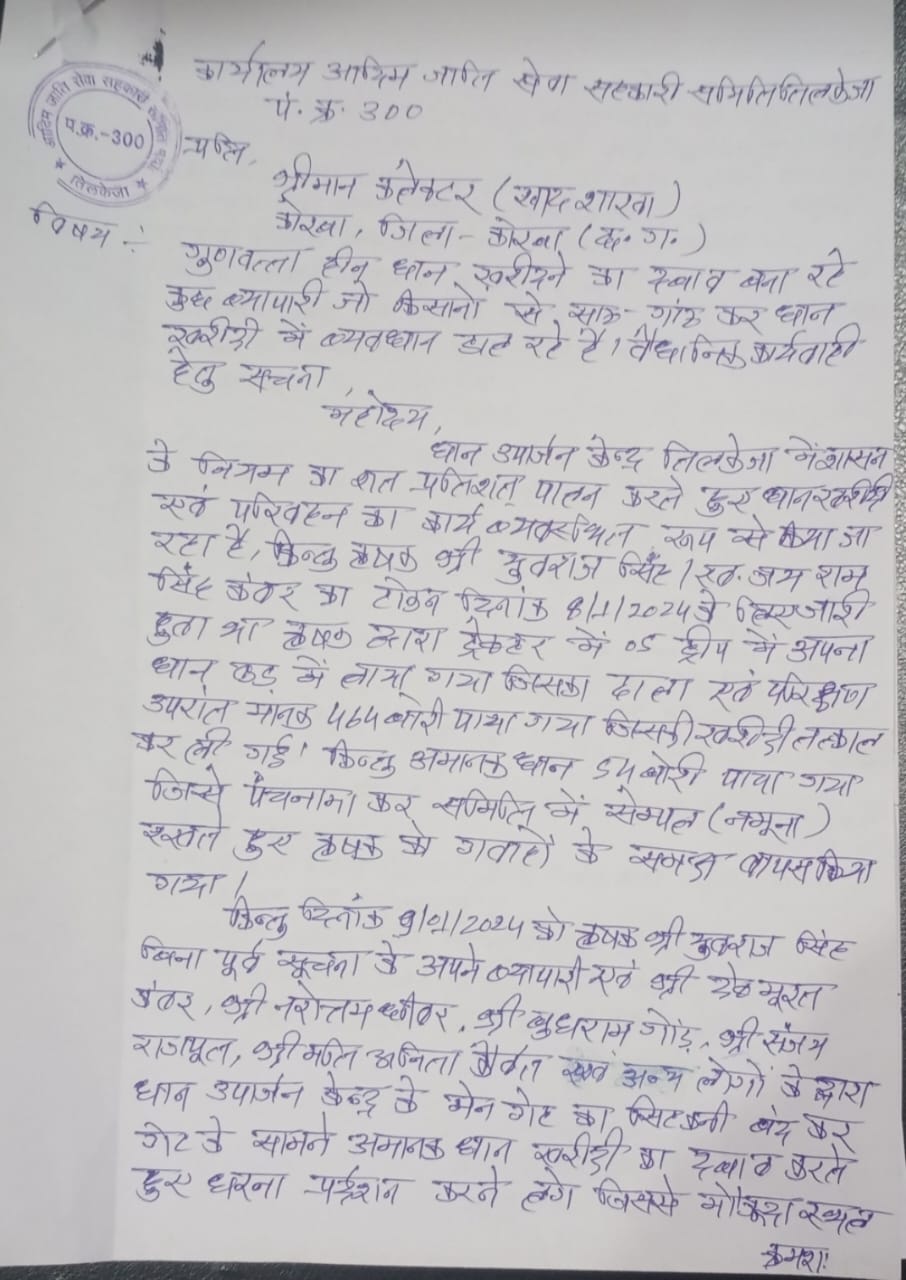 कार्यालय आदिम जाति सेवा सहकारी समिति तिलकेजा
पं. क्र. 300
आदिम जाति सेवा सहकारी
प.क्र.-300
तिलकेजा
प्रति,
श्रीमान कलेक्टर (खाद्य शाखा)
कोरबा, जिला - कोरबा (छ. ग.)
विषय :-
गुणवत्ता हीन धान खरीदने का दबाव बना रहे
कुछ व्यापारी जो किसानों से साठ-गांठ कर धान
खरीदी में व्यवधान डाल रहे हैं। वैधानिक कार्यवाही
हेतु सूचना
महोदय,
धान उपार्जन केन्द्र तिलकेजा में शासन
के नियम का शत प्रतिशत् पालन करते हुए धान खरीदी
एवं परिवहन का कार्य व्यवस्थित रूप से किया जा
रहा है, किन्तु कृषक श्री युवराज सिंह / स्व. जय राम
सिंह कंवर का टोकन दिनांक 8/1/2024 के लिए जारी
हुआ था कृषक द्वारा ट्रेक्टर में 05 ट्रीप में अपना
धान फड़ में लाया गया जिसका ढाला एवं परिक्षण
उपरांत मानक 464 बोरी पाया गया जिसकी खरीदी तत्काल
कर ली गई। किन्तु अमानक धान 54 बोरी पाया गया
जिसे पंचनामा कर समिति में सेम्पल (नमूना)
रखते हुए कृषक को गवाहों के समक्ष वापस किया
गया।
किन्तु दिनांक 9/01/2024 को कृषक श्री युवराज सिंह
बिना पूर्व सूचना के अपने व्यापारी एवं श्री देव मूरत
कंवर, श्री नरोत्तम धीवर, श्री बुधराम गोंड़, श्री संजय
राजपूत, श्रीमति अनिता कैवर्त एवं अन्य लोगों के द्वारा
धान उपार्जन केन्द्र के मेन गेट का सिटकनी बंद कर
गेट के सामने अमानक धान खरीदी का दबाव करते
हुए धरना प्रर्दशन करने लगे जिससे मौजूदा स्थल
क्रमशः